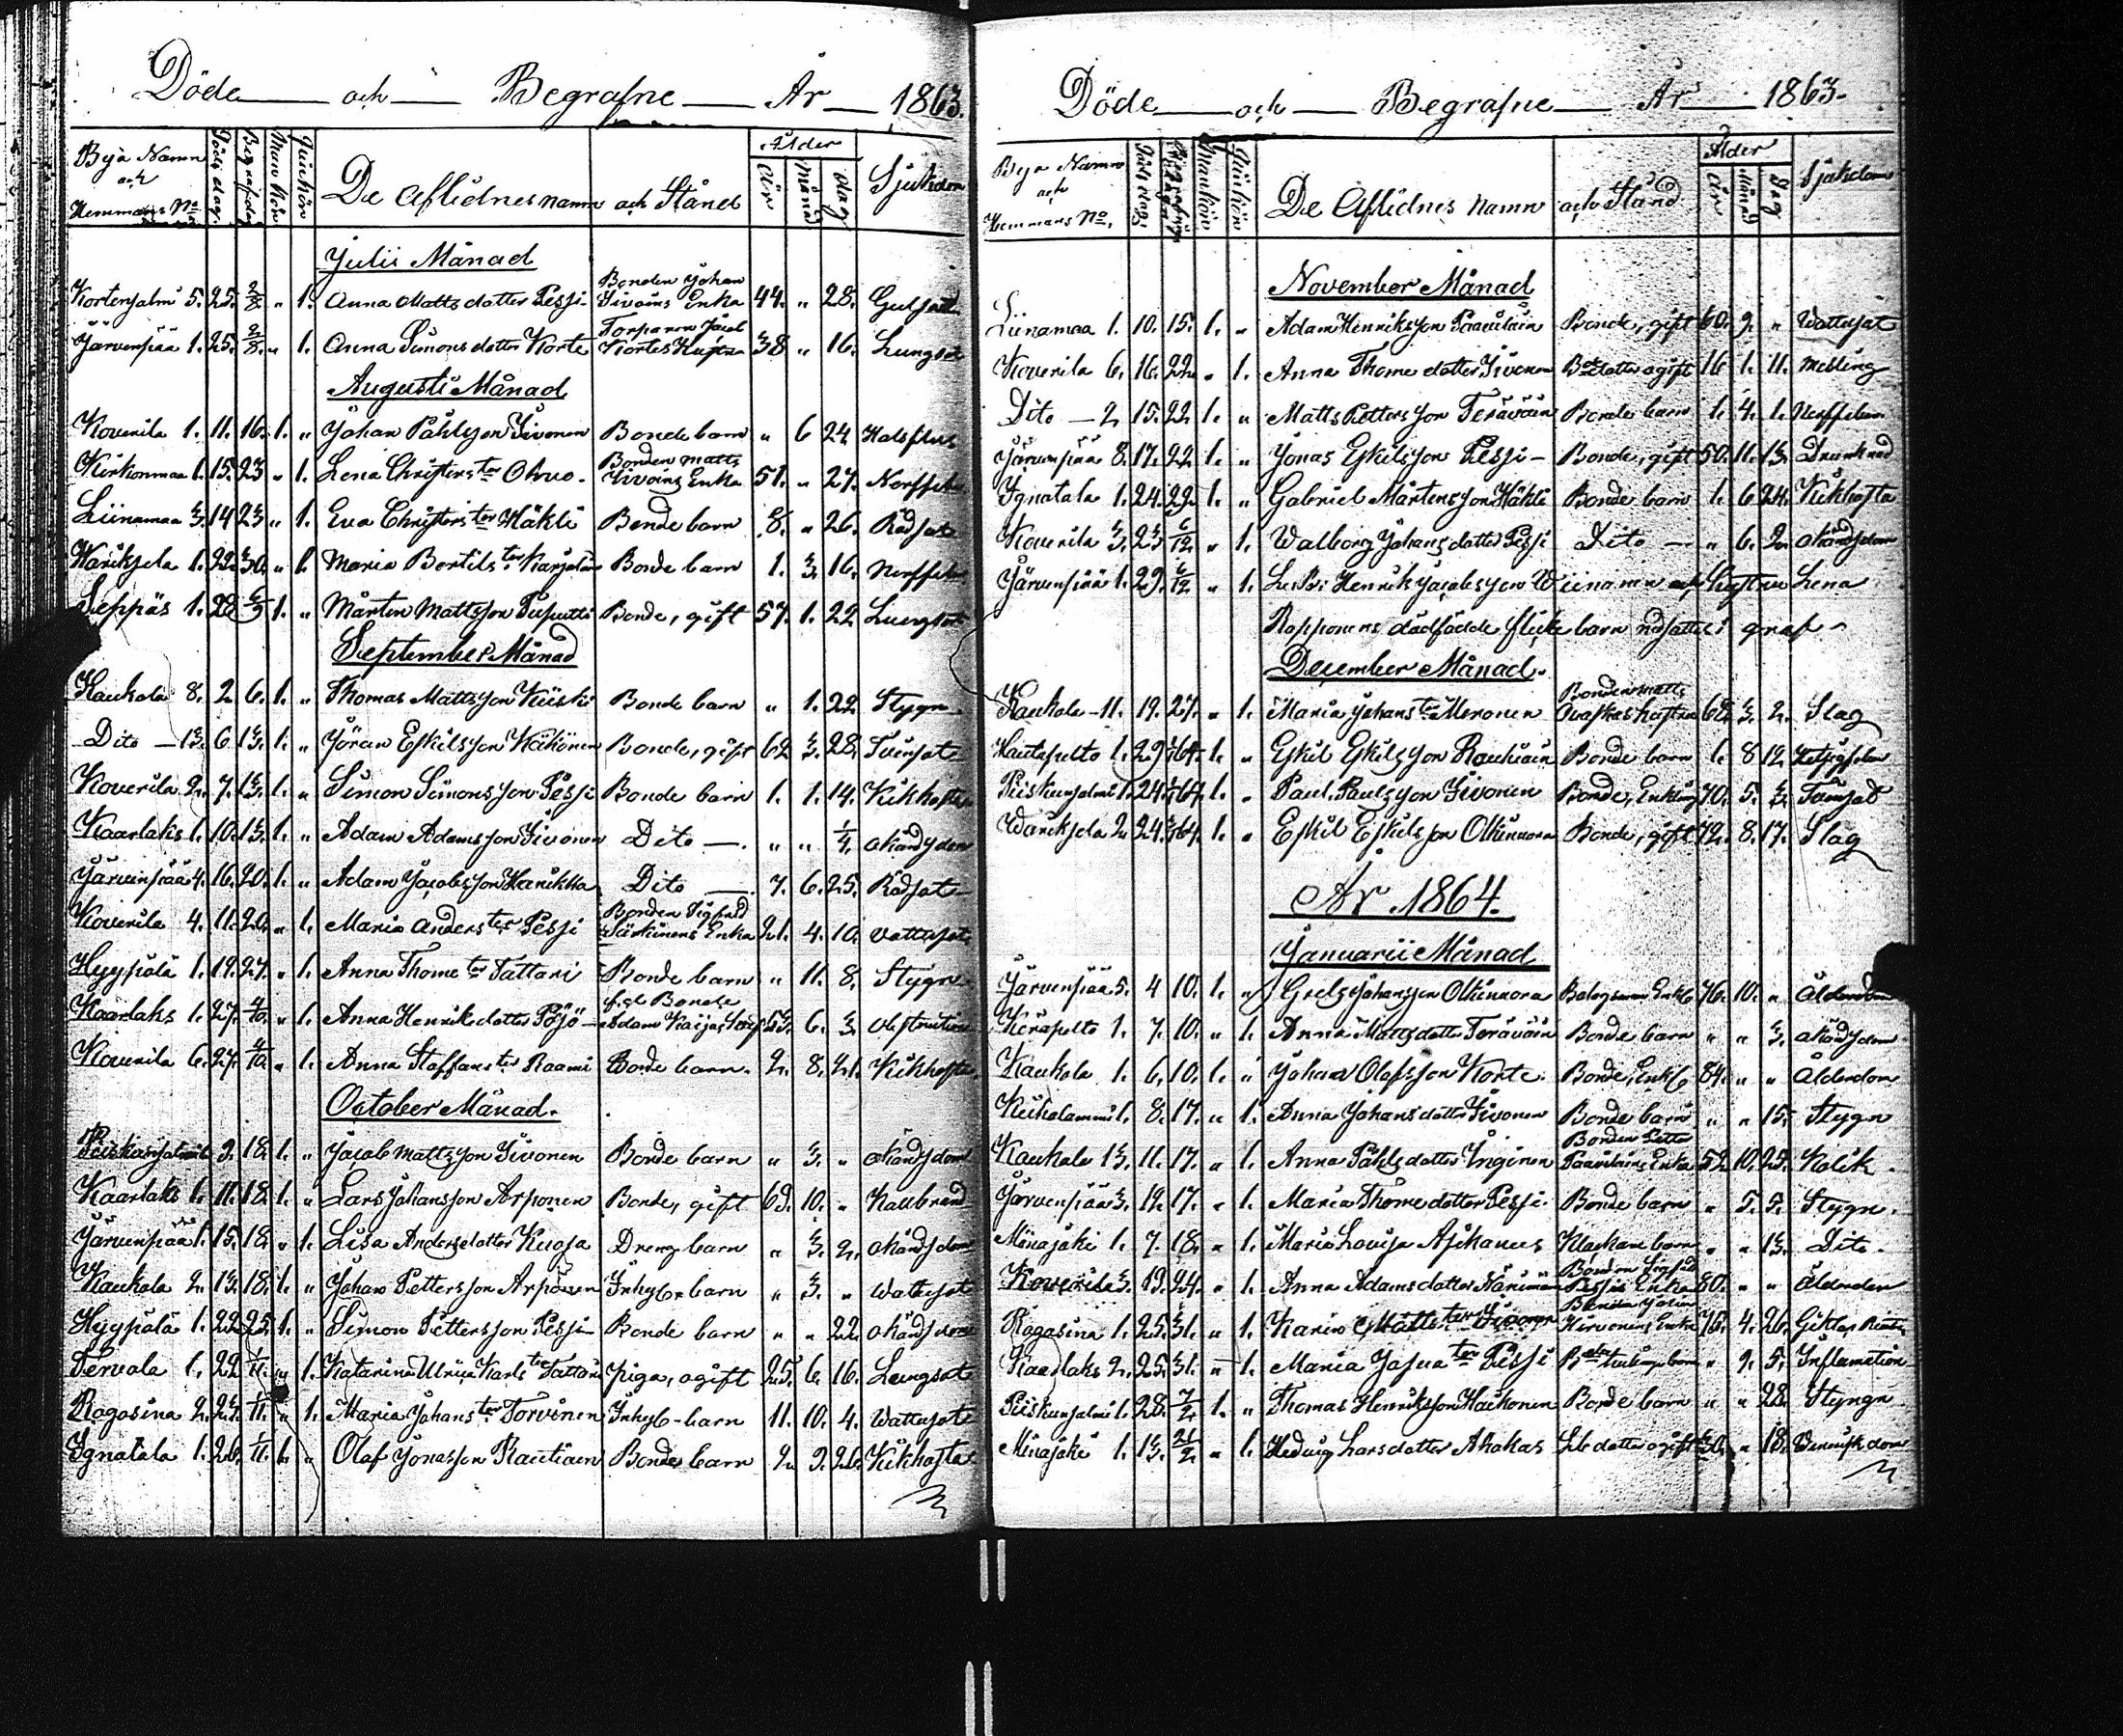 Döde och Begrafne År 1863.
Byа Namn och Hemmans No Död dag. Begrafn. dag Mankön Qvinkön De Aflidnes namn och Stånd Ålder År Månad dag Sjukdom
Julii Månad
Kortensalmi 5. 25. 2/8. " 1. Anna Matts dotter Pessi Bonden Johan Sivoins Enka 44. " 28. Gulsot
Järvenpää 1. 25. 2/8. " 1. Anna Simons dotter Korte Torparen Jacob Kortes Hustru 38 " 16. Lungsot
Augusti Månad
Koverila 1. 11. 16. 1. " Johan Påhlsson Sivonen Bonde barn " 6 24 Halsfluss
Kirkonmaa 1. 15. 23 " 1. Lena Christers ter Ohvo. Bonden Matts Sivoins Enka 51. " 27. Nerffeber
Liinamaa 3. 14 23 " 1. Eva Christers ter Häkli Bonde barn 8. " 26. Rödsot
Wariksela 1. 22. 30. " 1. Maria Bertils tr Karjalain Bonde barn 1. 3. 16. Nerffeber
Seppäs 1. 28 6/9 1. " Mårten Mattsson Puputti Bonde, gift 57. 1. 22 Lungsot
September Månad
Kaukola 8. 2 6. 1. " Thomas Mattsson Kiiski Bonde barn " 1. 22. Stygn
Dito 13. 6 13. 1. " Jöran Eskilsson Häkönen Bonde, gift 62 3. 28. Tvinsot
Koverila 2. 7. 13. 1. " Simon Simonsson Pessi Bonde barn 1. 1. 14. Kikhosta
Kaarlaks 1. 10. 13. 1. " Adam Adamsson Sivonen Dito " " 1/4. okänd sjdom
Järvenpää 4. 16. 20. 1. " Adam Jacobsson Hanikka Dito 7. 6. 25. Rödsot
Koverila 4. 11. 20. " 1. Maria Anders ter Pessi Bonden Sigfrid Särkinens Enka 21. 4. 10. Vattusot
Hyypiälä 1. 19. 27. " 1. Anna Thome ter Tattari Bonde barn " 11. 8. Stygn
Kaarlaks 1. 27. 4/10. " 1. Anna Henriksdotter Pöjö 53. 6. 3. obstruction
Koverila 6. 27. 4/10. " 1. Anna Staffans ter Raami Bonde barn. 2. 8. 21. Kikhosta
October Månad.
Piiskunsalmi 1. 9. 18. 1. " Jacob Mattsson Sivonen Bonde barn " 3. " okänd sjdom
Kaarlaks 1. 11. 18. 1. " Lars Johansson Arponen Bonde, gift 69. 10. " Kallbrand
Järvenpää 1. 15. 18. " 1. Lisa Andersdotter Kuosa Dreng barn " 3. 2. okänd sjdom
Kaukola 2. 13. 18. 1. " Johan Pettersson Arponen Inhys-barn " 3. " Wattusot
Hyypiälä 1. 22 25. 1. " Simon Pettersson Pessi Bonde barn " " 22. okänd sjdom
Tervola 1. 22 1/11. " 1. Katarina Ulrica Karls ter Tattari piga, ogift 25. 6. 16. Lungsot
Rogosina 2. 24. 1/11. " 1. Maria Johans ter Torvinen Inhys-barn 11. 10. 4. Wattusot
Ignatala 1. 26. 1/11. 1. " Olof Jonasson Rautiain Bonde barn 2 9. 26. Kikhosta
Döde och Begrafne År 1863.
Bya Namn och Hemmans No. Död dag. Begrafn. dag Mankön Qvinkön De Aflidnes Namn och Stånd Ålder År Månad Dag Sjukdom
November Månad
Liinamaa 1. 10. 15. 1. " Adam Henriksson Paavilain Bonde, gift 60. 9. " Wattusot
Koverila 6. 16. 22. " 1. Anna Thome dotter Sivonen Bdedotter ogift 16 1. 11. Messling
Dito 2 15. 22 1. " Matts Pettersson Teräväin Bonde barn 1. 4. 1. Nerffeber
Järvenpää 8. 17. 22 1. " Jonas Eskilsson Pessi Bonde, gift 50. 11. 13. Drunknad
Ignatala 1. 24. 29. 1. " Gabriel Mårtensson Häkli Bonde barn 1. 6 24. Kikhosta
Koverila 3. 23 6/12 " 1. Walborg Johans dotter Pessi Dito " 6. 2. okänd sjdom
Järvenpää 1. 29. 6/12 " 1. Henrik Jacobsson Hustru Lena
Rapponens dödfödde flicke barn nedsattes i graf
December Månad.
Kaukola 11. 19. 27. " 1. Maria Johans ter Meronen Bonden Matts Hustru 68. 3. 2. Slag
Hautapelto 1. 29 1. " Eskil Eskilsson Rautiain Bonde barn 1. 8 12
Piiskunsalmi 1. 24. 1. " Paul Paulsson Sivonen Bonde, Enkling 70. 5. 3.
Wariksela 2. 24. 1. " Eskil Eskilsson Olkinuora Bonde, gift 72. 8. 17. Slag
År 1864.
Januarii Månad
Järvenpää 5. 4 10. 1. " Grels Johansson Olkinuora 76. 10. " Ålderdom
Keräpelto 1. 7. 10. " 1. Anna Mattsdotter Teräväin Bonde barn " " 3. okänd sjdom
Kaukola 1. 6. 10. 1. " Johan Olofsson Korte. Bonde, Enkl 84. " " Ålderdom
1. 8. 17. " 1. Anna Johans dotter Sivonen Bonde barn " " 15. Stygn
Kaukola 13. 11. 17. " 1. Anna Påhlsdotter Inginen Bonden Petter Paavilains Enka 52 10. 25. Kolik
Järvenpää 3. 12. 17. " 1. Maria Thome dotter Pessi Bonde barn " 5. 5. Stygn.
Miinajoki 1. 7. 18. " 1. Maria Lovisa Klockare barn " " 13. Dito.
Koverila 3. 19. 24. " 1. Anna Adamsdotter Bonden Sigfrid Pessis Enka 80. " " Ålderdom
Rogosina 1. 25. 31. " 1. Karin Matts ter Sivonen Hirvonens Enka 75. 4. 26.
Kaarlaks 2. 25. 31. " 1. Maria Josua ter Pessi " 9. 5. Inflamation
Piiskunsalmi 1. 28. 7/2 1. " Thomas Henriksson Haikonen Bonde barn " " 28. Styngn
Miinajoki 1. 13. 21/2 " 1. Hedvig Larsdotter Ahokas dotter ogift " 18.